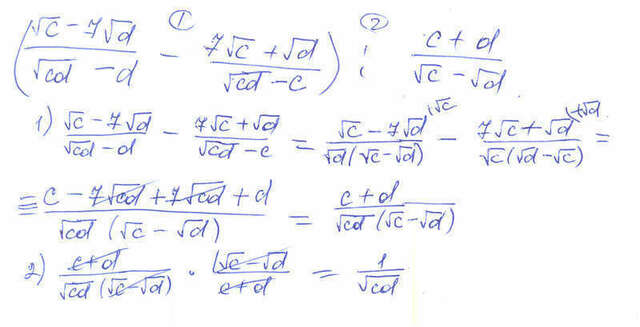 ① ②
((√c − 7√d)/(√cd − d) − (7√c + √d)/(√cd − c)) : (c + d)/(√c − √d)
1) (√c − 7√d)/(√cd − d) − (7√c + √d)/(√cd − c) = (√c − 7√d)/(√d(√c − √d)) |√c − (7√c + √d)/(√c(√d − √c)) |+√d =
= (c − 7√cd + 7√cd + d)/(√cd (√c − √d)) = (c + d)/(√cd (√c − √d))
2) (c + d)/(√cd (√c − √d)) · (√c − √d)/(c + d) = 1/√cd